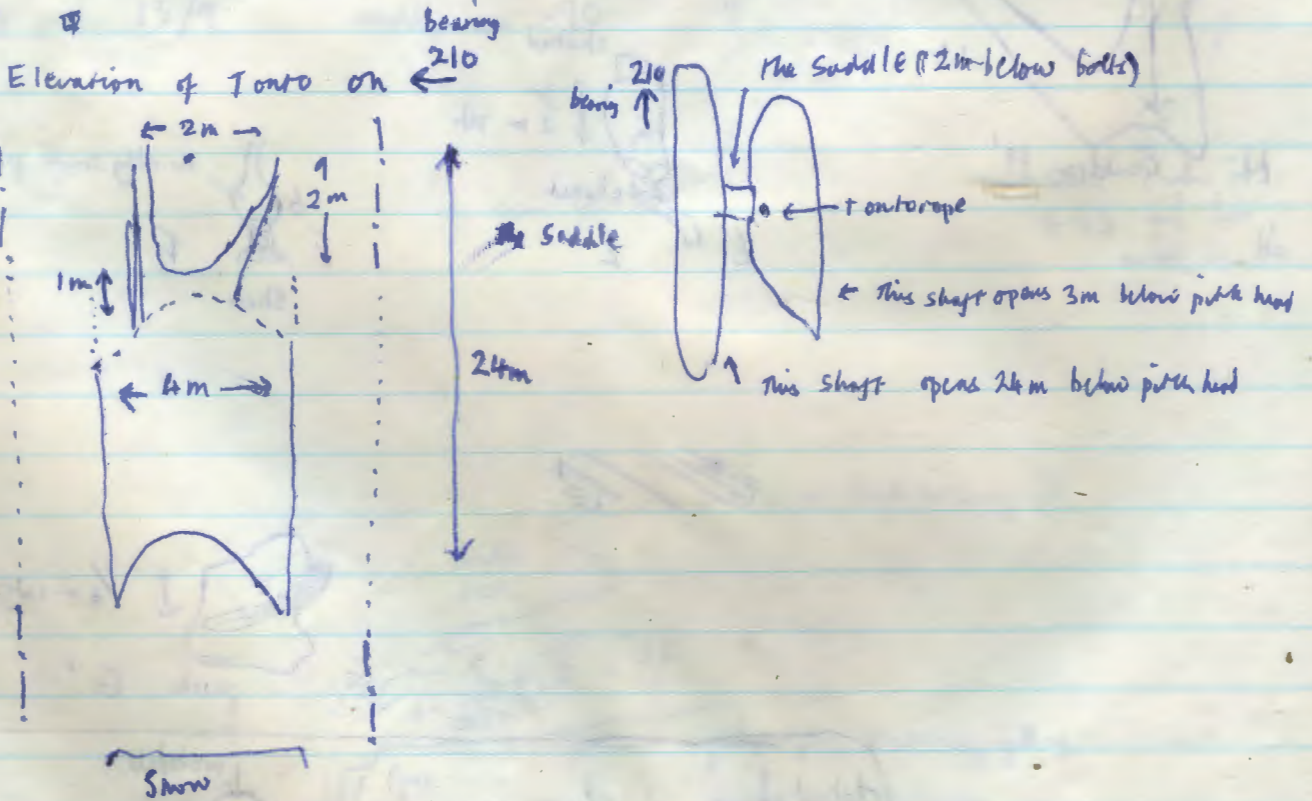 bearing
210
Elevation of Tonto on
2m
2m
1m
4m
24m
Saddle
Snow
210
bearing
The Saddle (2m below bolts)
Tonto rope
This shaft opens 3m below pitch head
This shaft opens 24m below pitch head